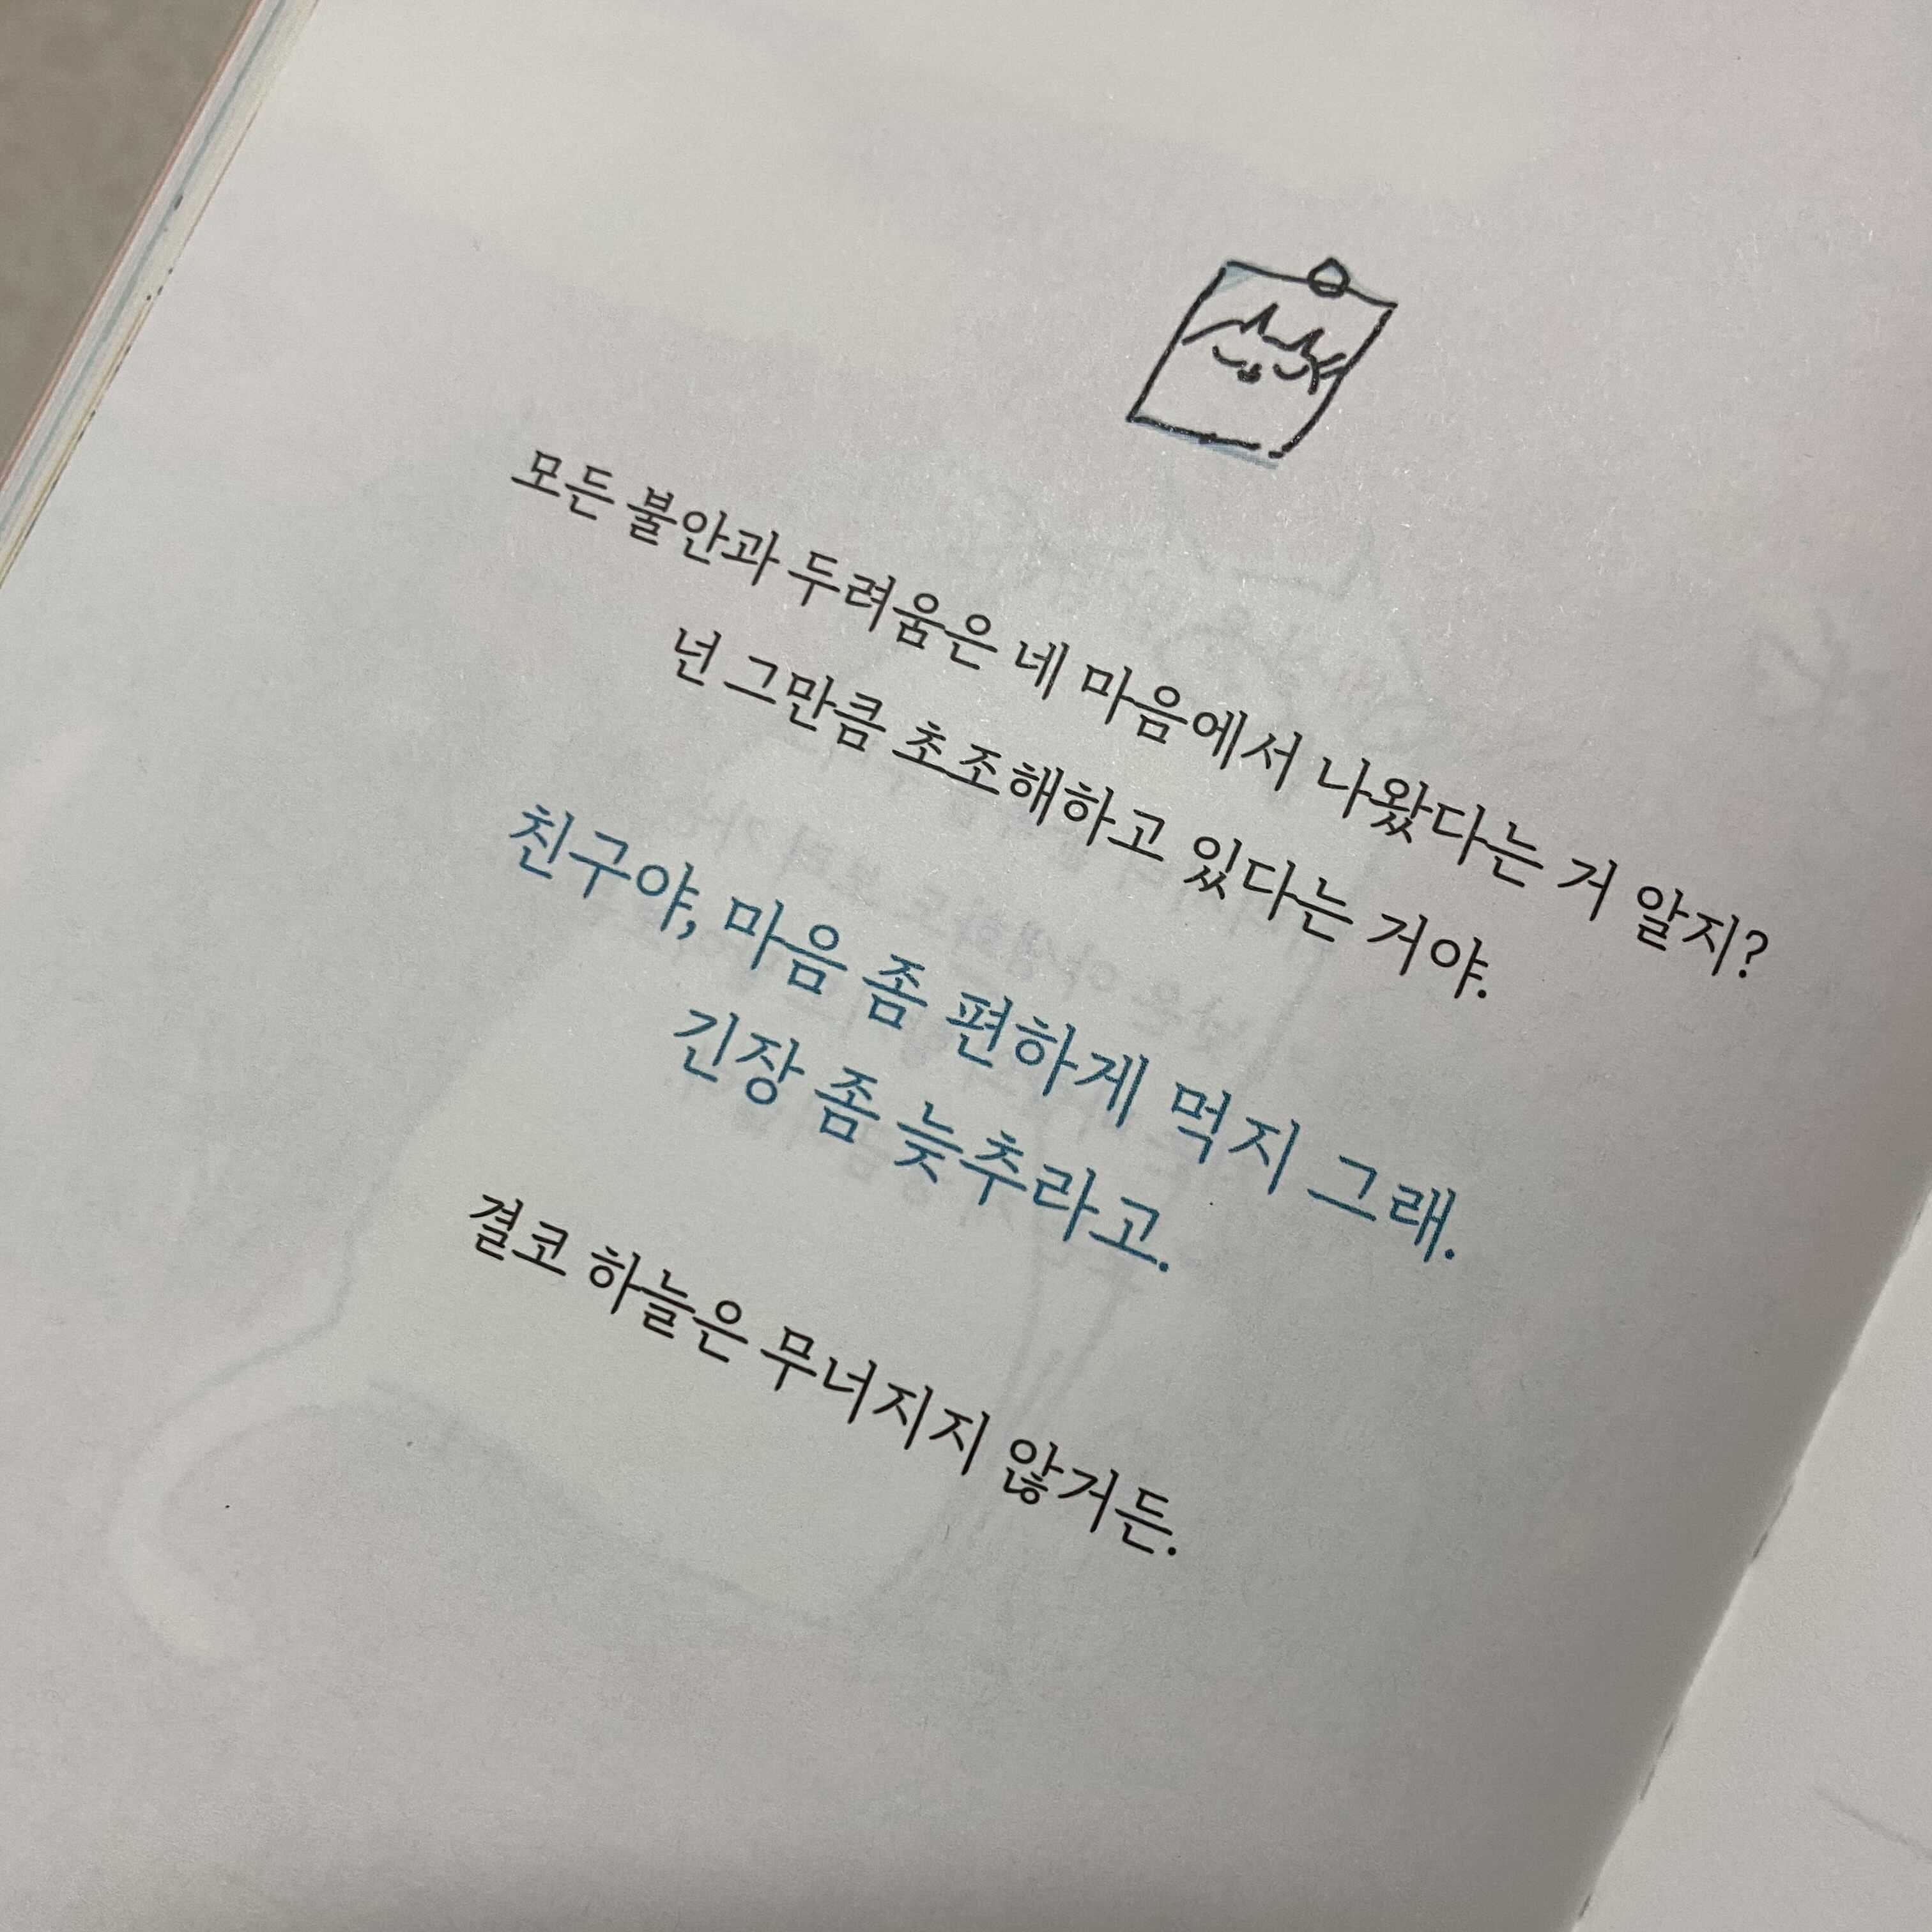 모든 불안과 두려움은 네 마음에서 나왔다는 거 알지?
넌 그만큼 초조해하고 있다는 거야.
친구야, 마음 좀 편하게 먹지 그래.
긴장 좀 늦추라고.
결코 하늘은 무너지지 않거든.